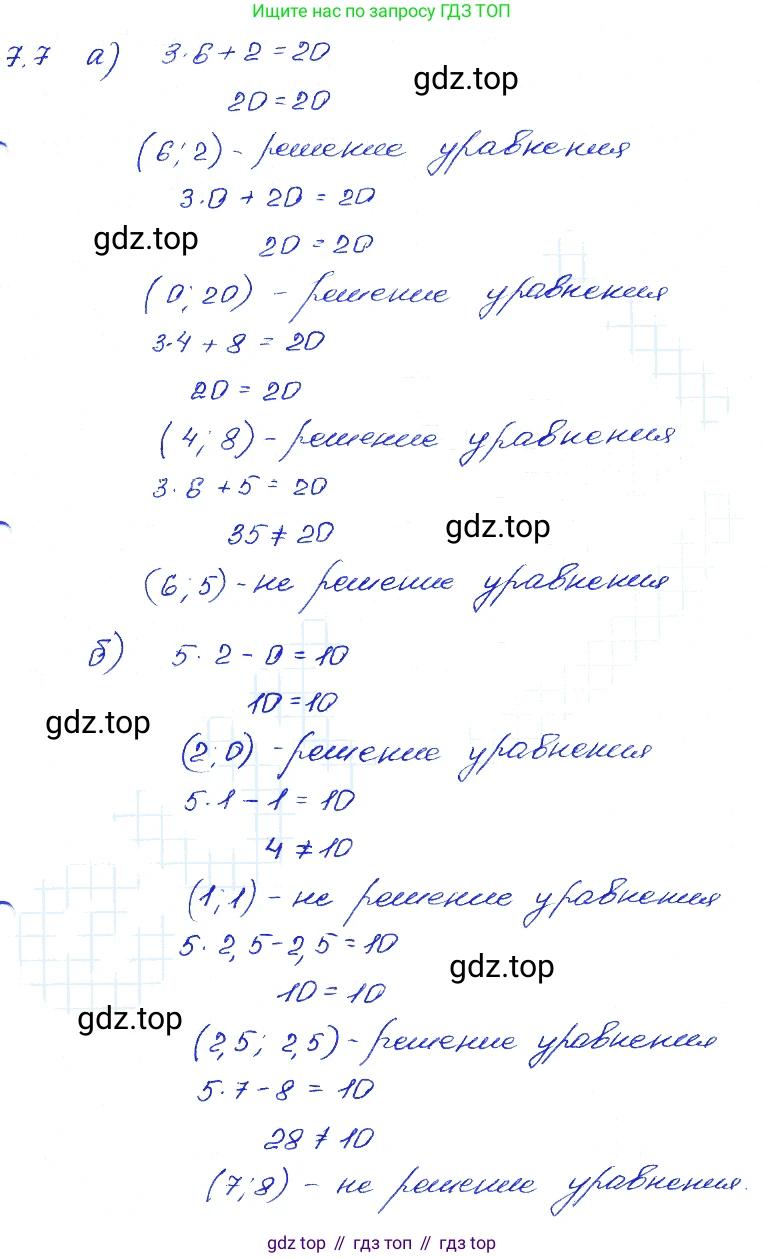 Ищите нас по запросу ГДЗ ТОП
7.7 а) 3·6+2=20
gdz.top
20=20
(6; 2) - решение уравнения
3·0 + 20 = 20
gdz.top
20 = 20
(0; 20) - решение уравнения
3·4 + 8 = 20
20 = 20
(4; 8) - решение уравнения
3·6 + 5 = 20
gdz.top
35 ≠ 20
(6; 5) - не решение уравнения
б) 5·2 - 0 = 10
10 = 10
gdz.top
(2; 0) - решение уравнения
5·1 - 1 = 10
4 ≠ 10
(1; 1) - не решение уравнения
5·2,5 - 2,5 = 10
gdz.top
10 = 10
gdz.top
(2,5; 2,5) - решение уравнения
5·7 - 8 = 10
28 ≠ 10
(7; 8) - не решение уравнения.
gdz top // гдз топ // гдз top